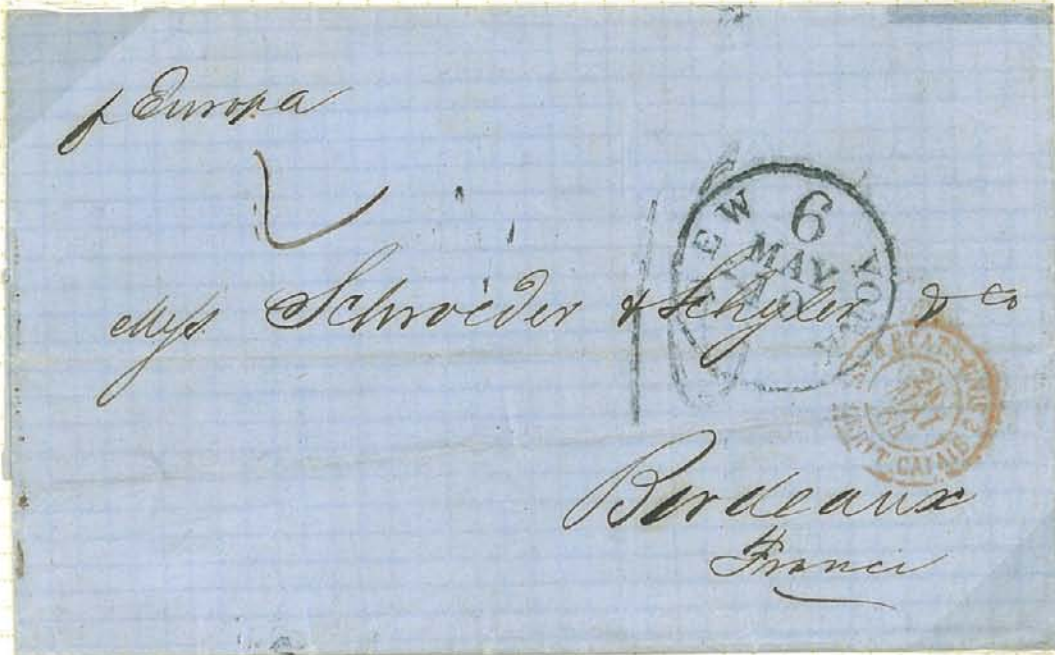 p Europa
Mess Schroëder & Schyler & Co
NEW YORK
6
MAY
BRIT. CALAIS 2
Bordeaux
France